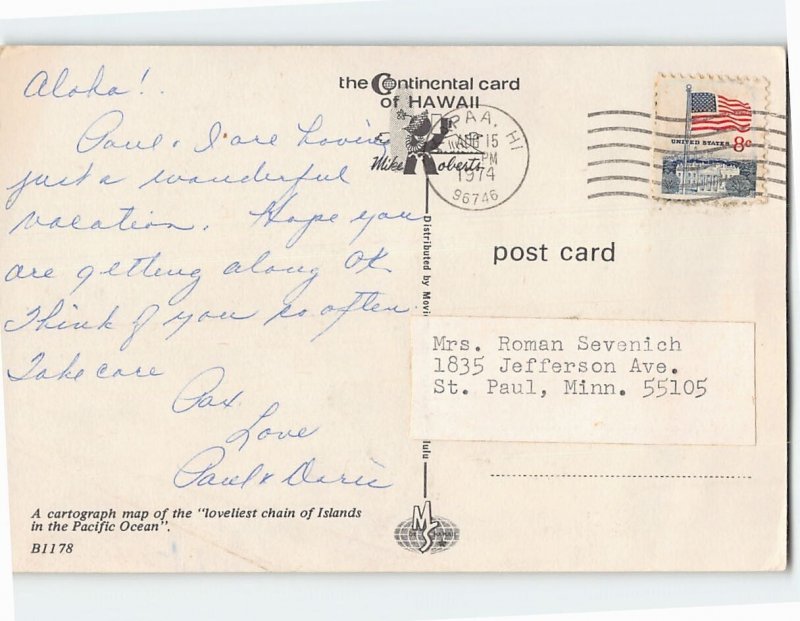 Aloha!
Paul & I are having
just a wonderful
vacation. Hope you
are getting along OK
Think of you so often.
Take care
Pax
Love
Paul & Doris
A cartograph map of the "loveliest chain of Islands
in the Pacific Ocean".
B1178
the Continental card
of HAWAII
Mike Roberts
PAA, HI
AUG 15
PM
1974
96746
UNITED STATES 8c
post card
Distributed by Movie
lulu
Mrs. Roman Sevenich
1835 Jefferson Ave.
St. Paul, Minn. 55105
MS